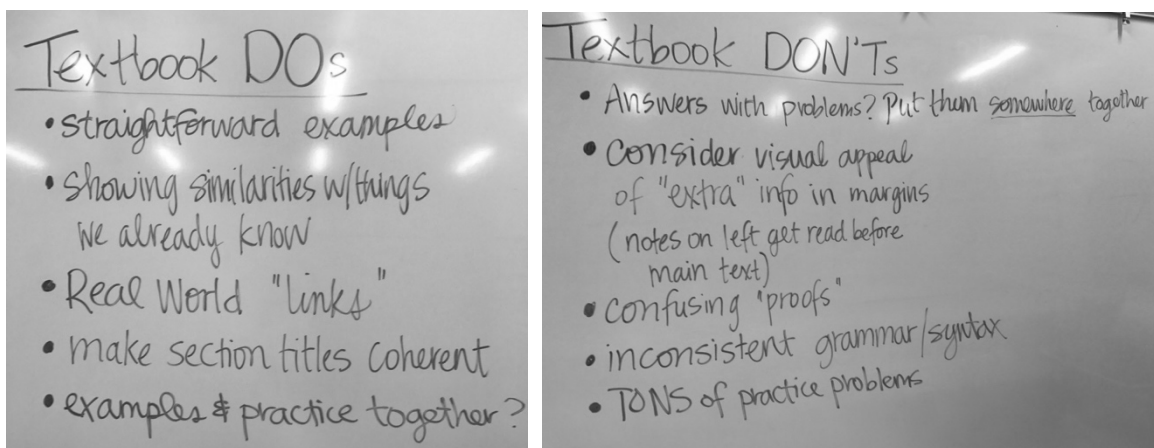 Textbook DOs
• straightforward examples
• showing similarities w/things
we already know
• Real World "links"
• make section titles coherent
• examples & practice together?
Textbook DON'Ts
• Answers with problems? Put them somewhere together
• Consider visual appeal
of "extra" info in margins
(notes on left get read before
main text)
• confusing "proofs"
• inconsistent grammar/syntax
• TONS of practice problems